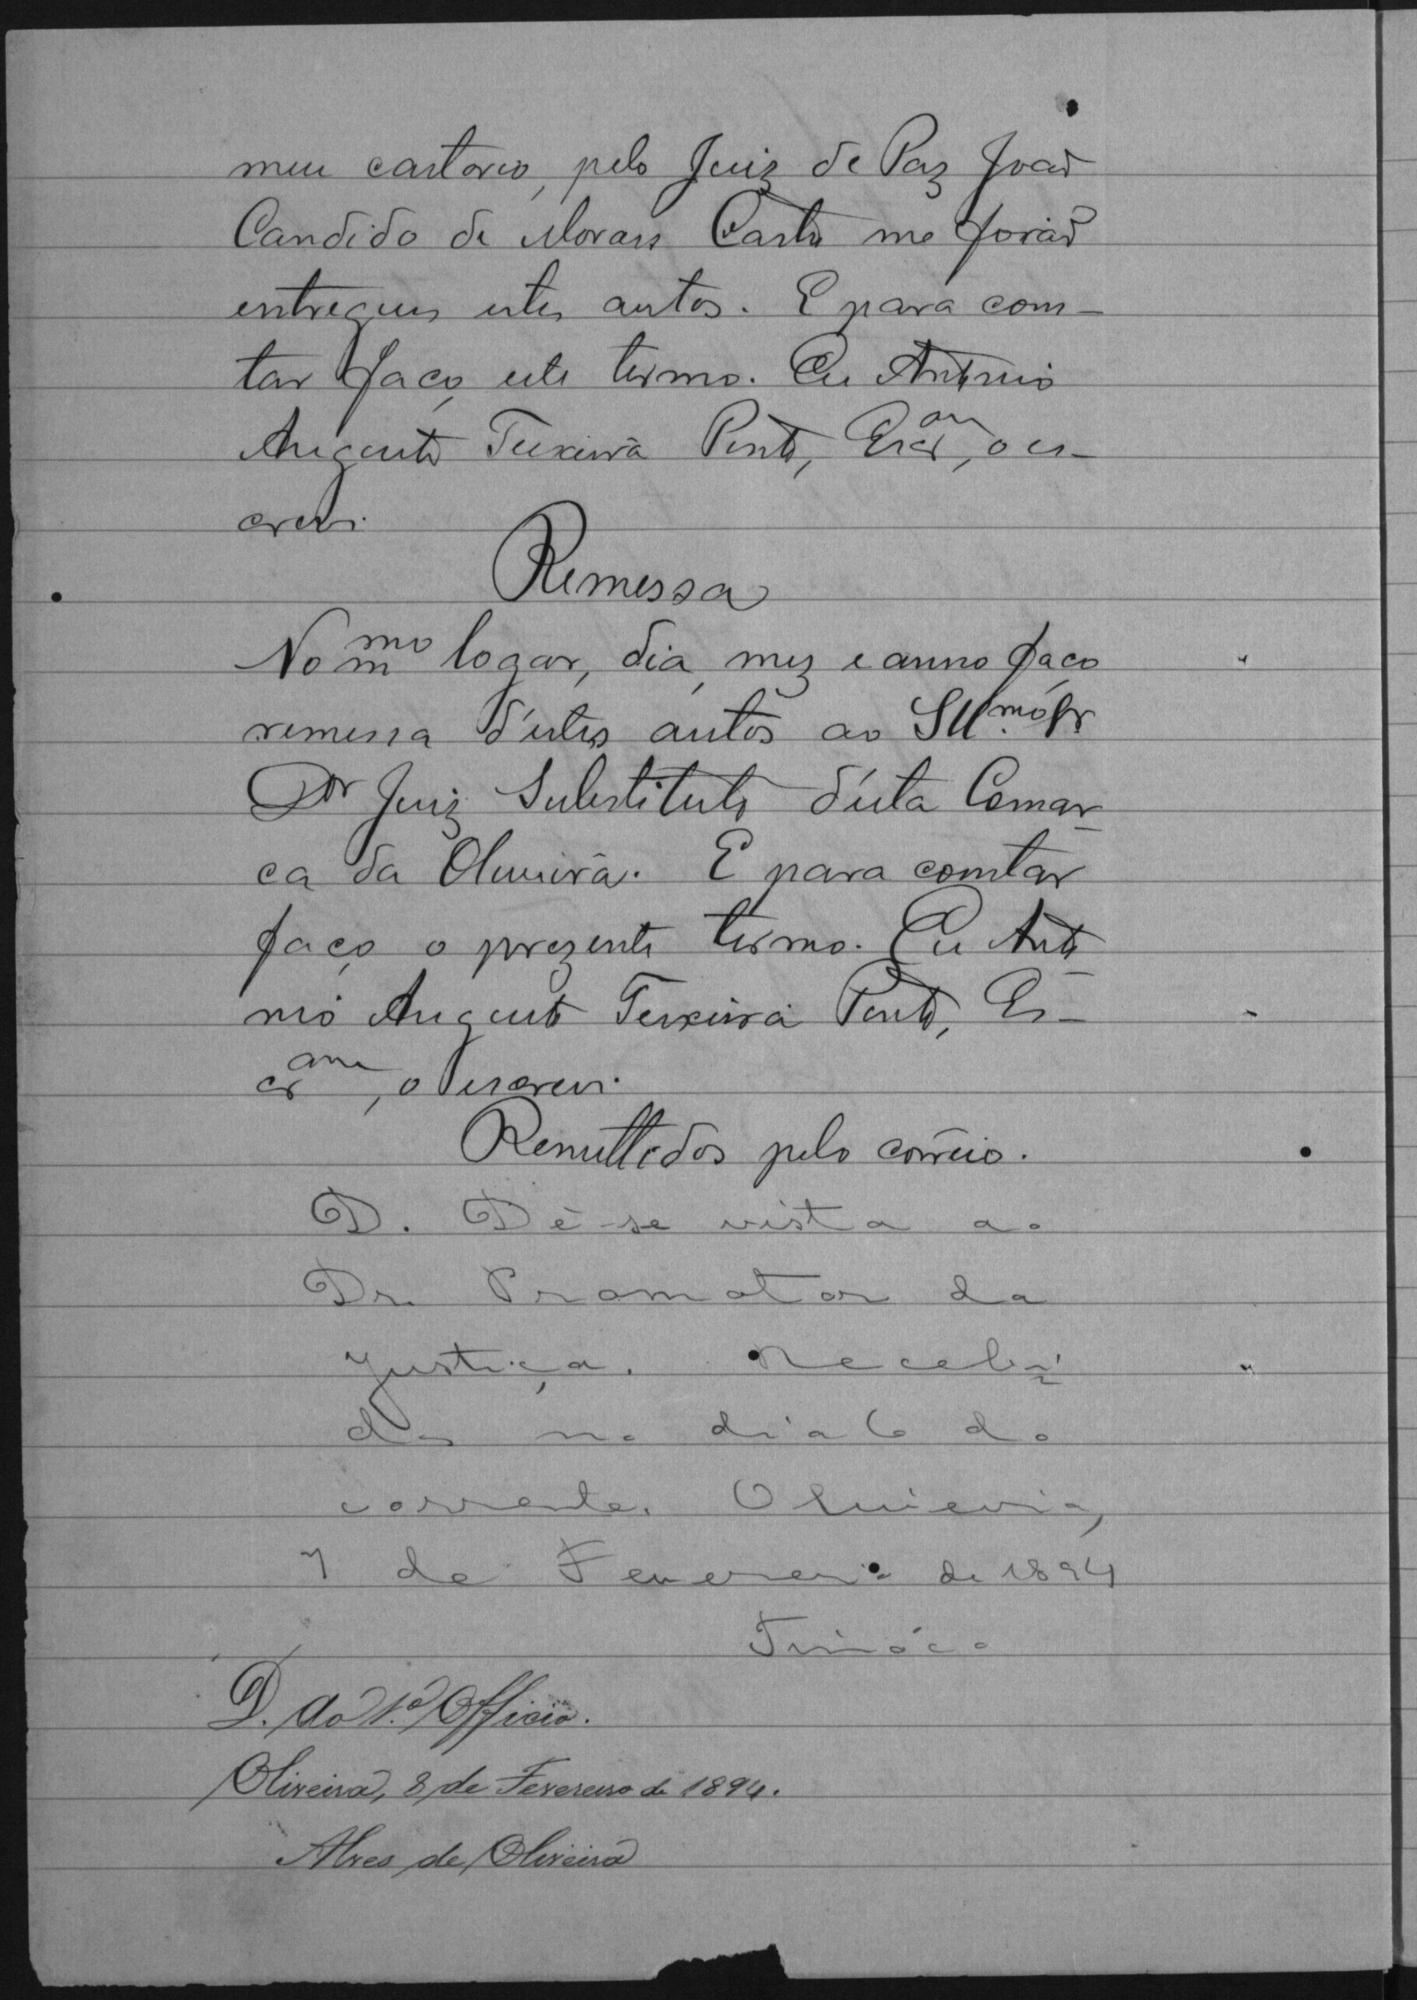 meu cartorio, pelo Juiz de Paz João
Candido de Moraes Castro me forão
entregues estes autos. E para cons-
tar faço este termo. Eu Antonio
Augusto Teixeira Pinto, Escram, o es-
crevi.
Remessa
No mmo logar, dia, mez e anno faço
remessa d'estes autos ao Illmo Sr
Dor Juiz Substituto d'esta Comar-
ca da Oliveira. E para constar
faço o prezente termo. Eu Anto-
nio Augusto Teixeira Pinto, Es-
cram, o escrevi.
Remettidos pelo correio.
D. Dê-se vista ao
Dr. Promotor da
Justiça. Recebi-
dos no dia 6 do
corrente. Oliveira,
7 de Fevereiro de 1894
D. Ao 1.º Officio.
Oliveira, 8 de Fevereiro de 1894.
Alves de Oliveira